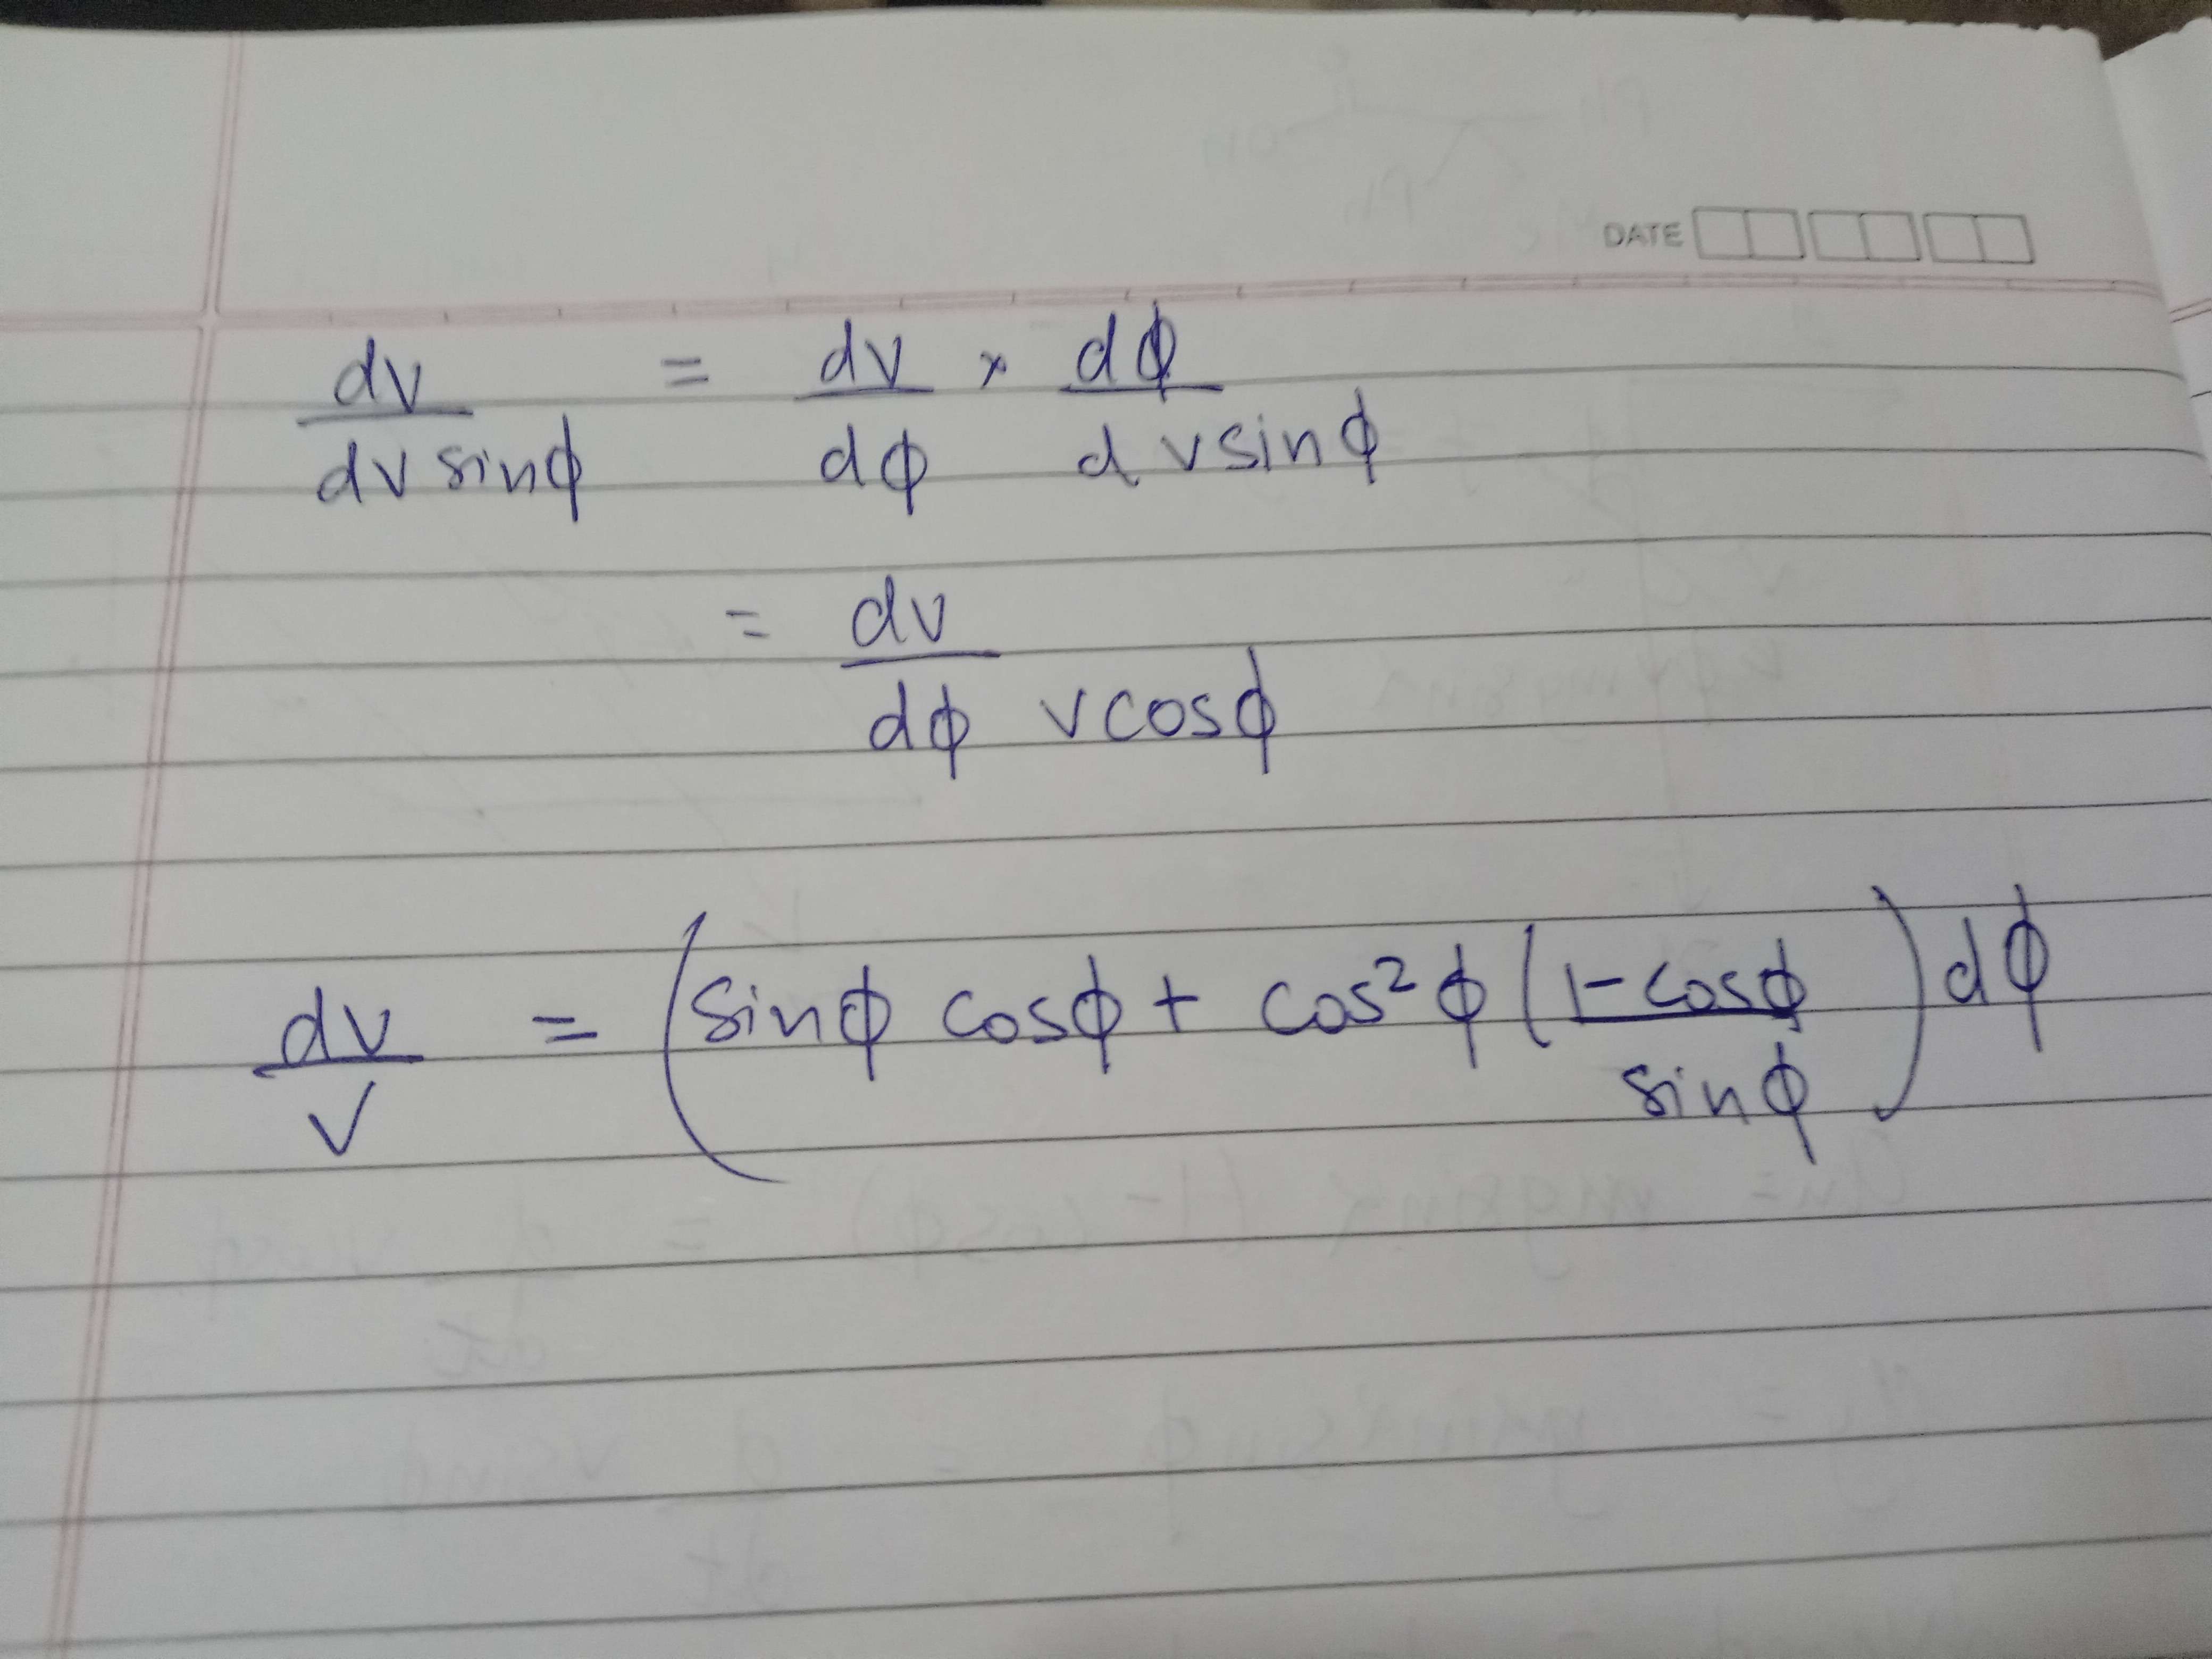 DATE
dv/dv sinϕ = dv/dϕ × dϕ/d v sinϕ
= dv/dϕ v cosϕ
dv/v = (sinϕ cosϕ + cos²ϕ (1 - cosϕ/sinϕ) dϕ